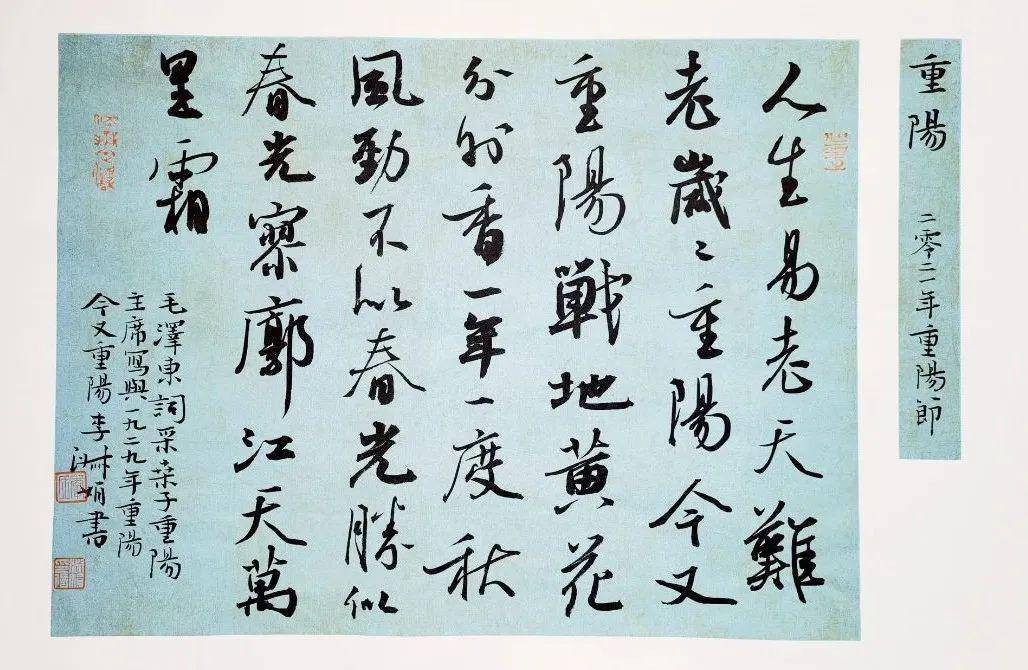 重陽
二零二一年重陽節
人生易老天難
老歲〻重陽今又
重陽戰地黃花
分外香一年一度秋
風勁不似春光勝似
春光寥廓江天萬
里霜
毛澤東詞采桑子重陽
主席寫與一九二九年重陽
今又重陽李淑娟書